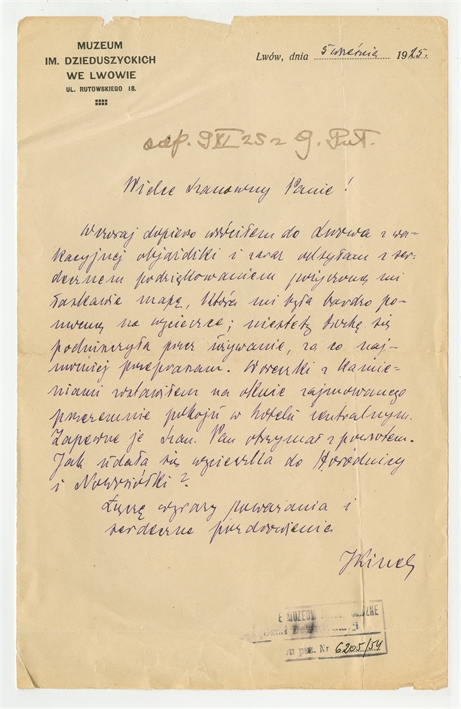 MUZEUM
IM. DZIEDUSZYCKICH
WE LWOWIE
UL. RUTOWSKIEGO 18.
Lwów, dnia 5 września 1925.
odp. 9 XI 25 z
Wielce Szanowny Panie!
Wczoraj dopiero wróciłem do Lwowa z wa-
kacyjnej objażdżki i zaraz odsyłam z ser-
decznem podziękowaniem pożyczoną mi
łaskawie mapę, która mi była bardzo po-
mocną na wycieczce; niestety trochę się
podniszczyła przez używanie, za co naj-
mocniej przepraszam. Woreczki z kamie-
niami zostawiłem na oknie zajmowanego
przezemnie pokoju w hotelu centralnym.
Zapewne je Szan. Pan otrzymał z powrotem.
Jak udała się wycieczka do Horodnicy
i Nowosiółki?
Łączę wyrazy poważania i
serdeczne pozdrowienia
E MUZEUM
Nr 6205/54